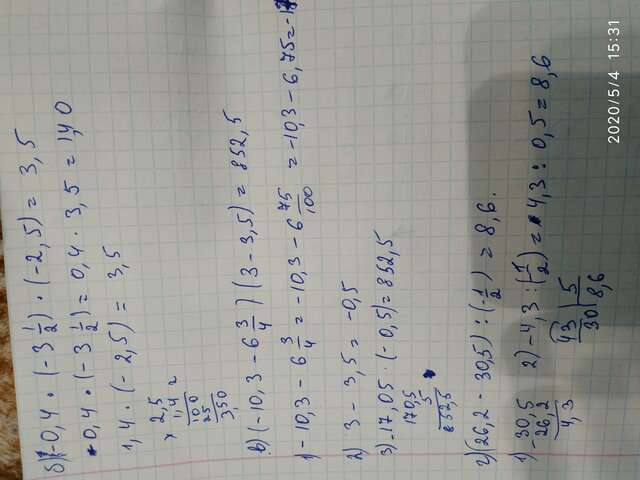 б) -0,4 · (-3 1/2) · (-2,5) = 3,5
-0,4 · (-3 1/2) = 0,4 · 3,5 = 1,40
1,4 · (-2,5) = 3,5
× 2,5
1,4
100
25
3,50
в) (-10,3 - 6 3/4) (3 - 3,5) = 852,5
1) -10,3 - 6 3/4 = -10,3 - 6 75/100 = -10,3 - 6,75 = -17
2) 3 - 3,5 = -0,5
3) -17,05 · (-0,5) = 852,5
170,5
5
852,5
г) (26,2 - 30,5) : (-1/2) = 8,6.
1) - 30,5
26,2
4,3
2) -4,3 : (-1/2) = 4,3 : 0,5 = 8,6
43 | 5
30 | 8,6
2020/5/4 15:31